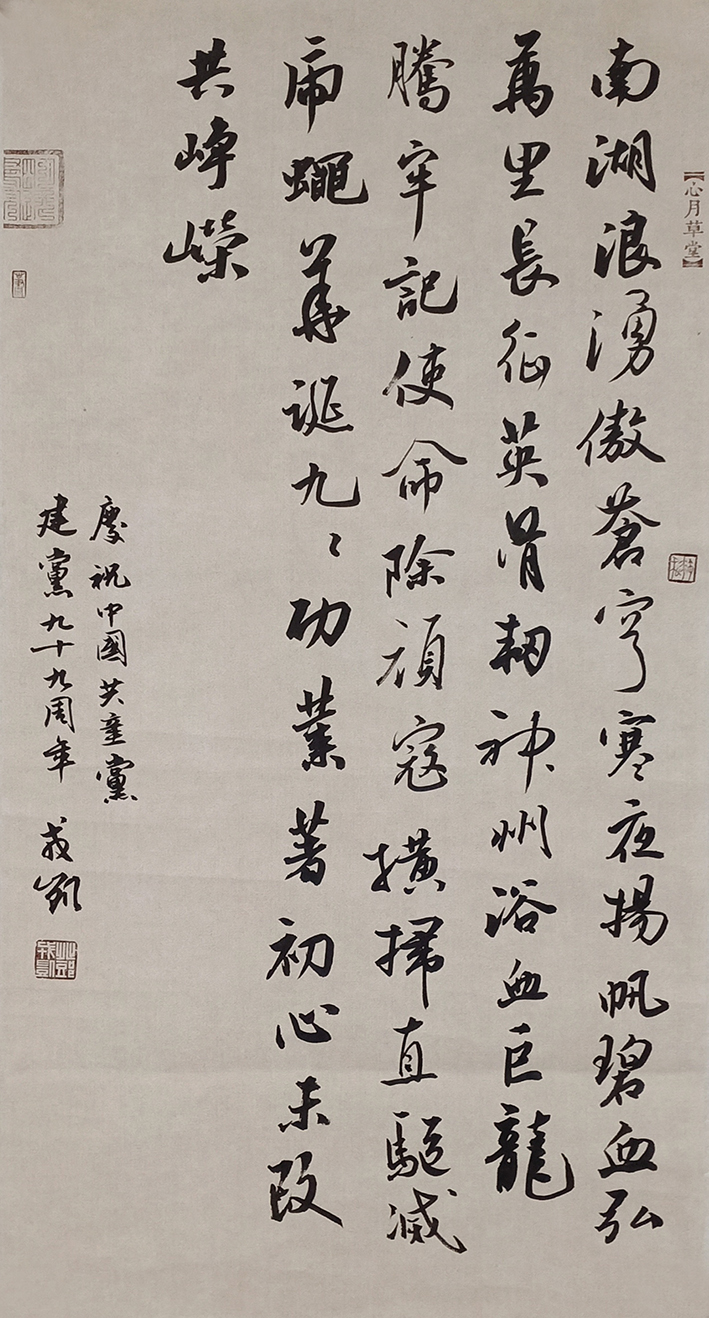 【心月草堂】
南湖浪湧傲蒼穹寒夜揚帆碧血弘
萬里長征英骨韌神州浴血巨龍
騰牢記使命除頑寇橫掃直驅滅
虎蠅華誕九〻功業著初心未改
共崢嶸
慶祝中國共產黨
建黨九十九周年